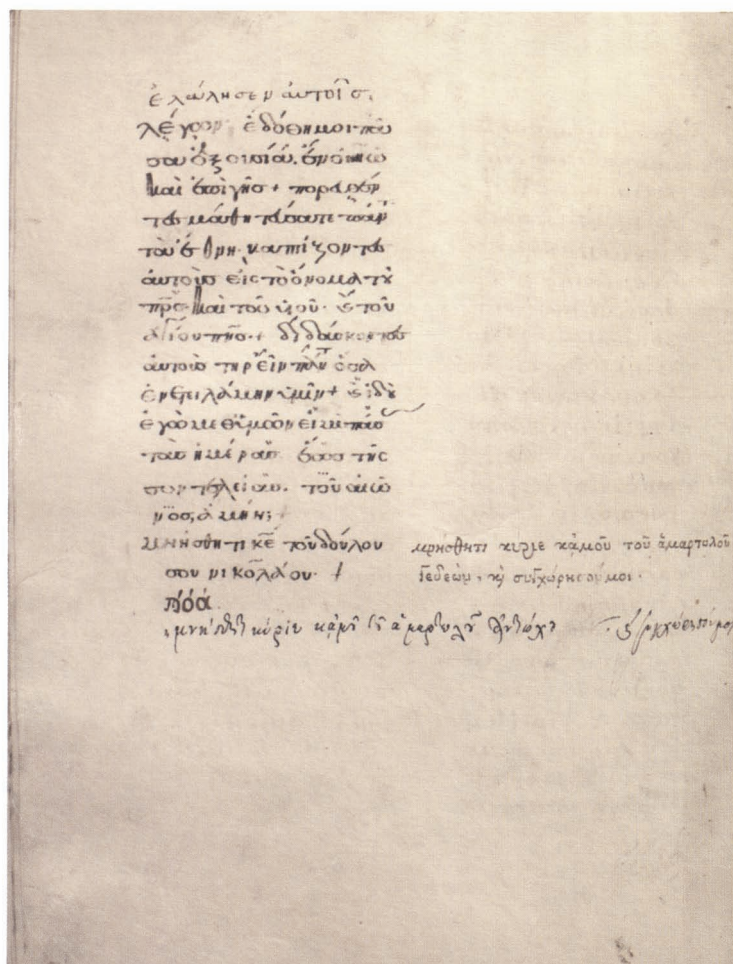 ἐλάλησεν αὐτοῖς
λέγων· ἐδόθη μοι πᾶ
σα ἐξουσία. ἐν οὐνῶ
καὶ ἐπὶ γῆς + πορευθέν
τες μαθητεύσατε πάν
τα τὰ ἔθνη. βαπτίζοντες
αὐτοὺς εἰς τὸ ὄνομα τοῦ
πρς καὶ τοῦ υἱοῦ· καὶ τοῦ
ἁγίου πνς + διδάσκοντες
αὐτοὺς τηρεῖν πάντα ὅσα
ἐνετειλάμην ὑμῖν + καὶ ἰδοὺ
ἐγὼ μεθ' ὑμῶν εἰμὶ πάσας
τὰς ἡμέρας ἕως τῆς
συντελείας. τοῦ αἰῶ
νος, ἀμήν; +
μνήσθητι κε τοῦ δούλου
σου νικολάου· +
μνήσθητι κύριε κἀμοῦ τοῦ ἁμαρτολοῦ
Γεδεὼν, καὶ συγχώρησού μοι.
μνήσθητι κύριε κἀμοῦ τοῦ ἁμαρτωλοῦ